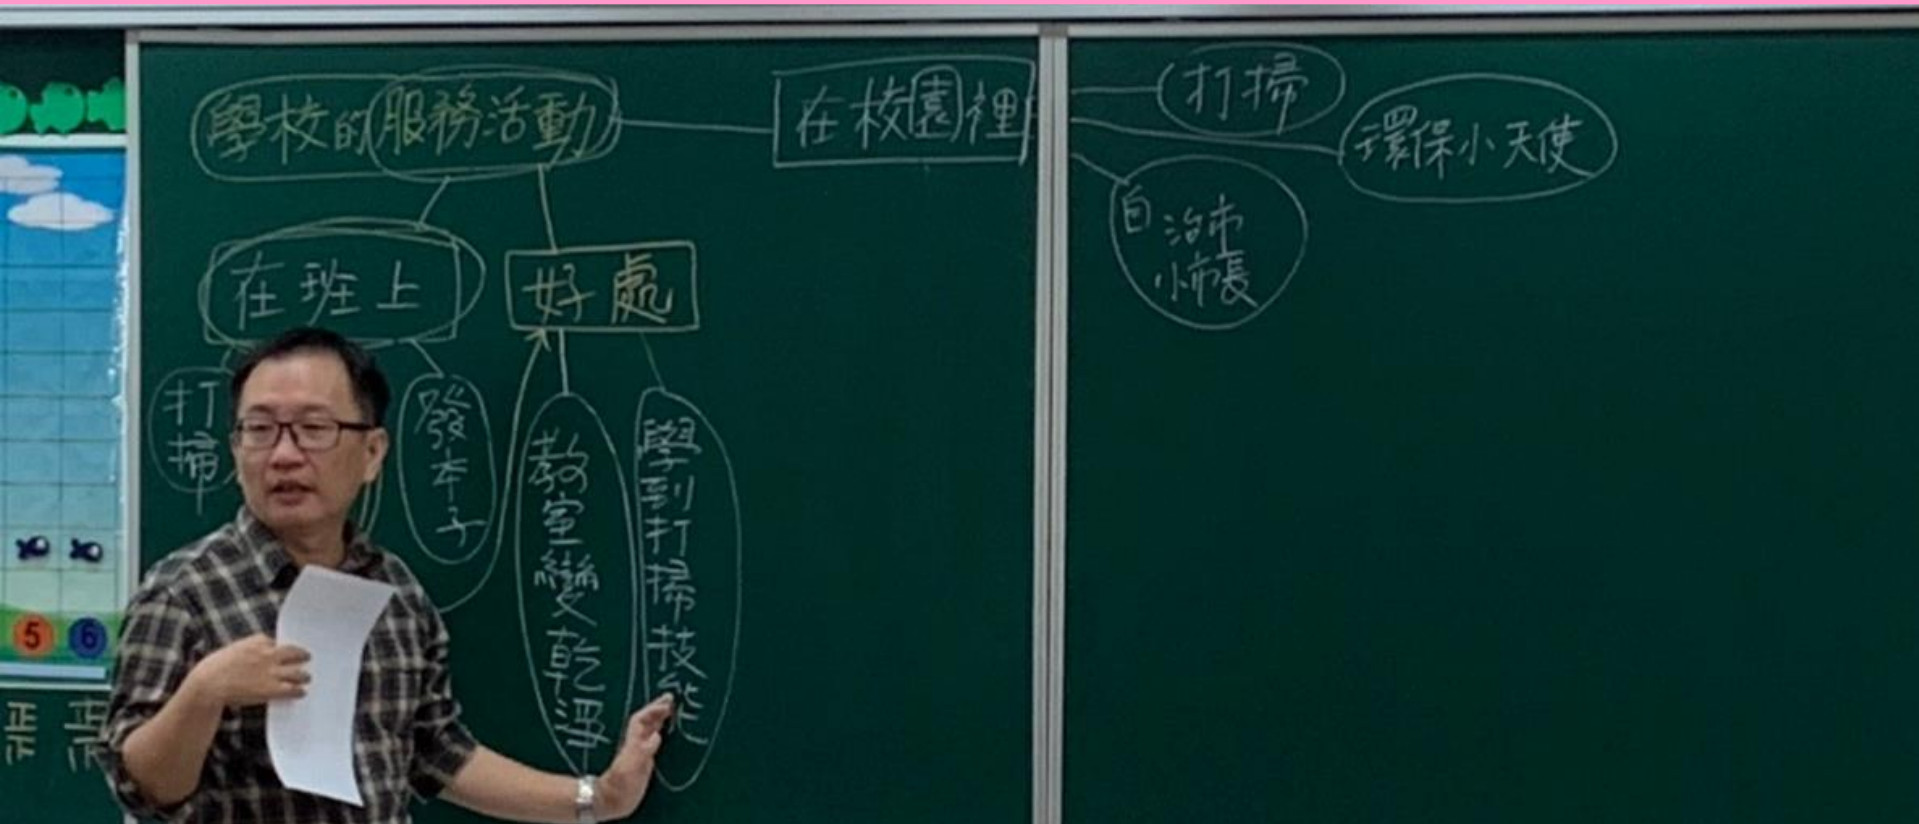 學校的服務活動
在校園裡
打掃
環保小天使
自治市
小市長
在班上
好處
打掃
發本子
教室變乾淨
學到打掃技能
5 6
正 正